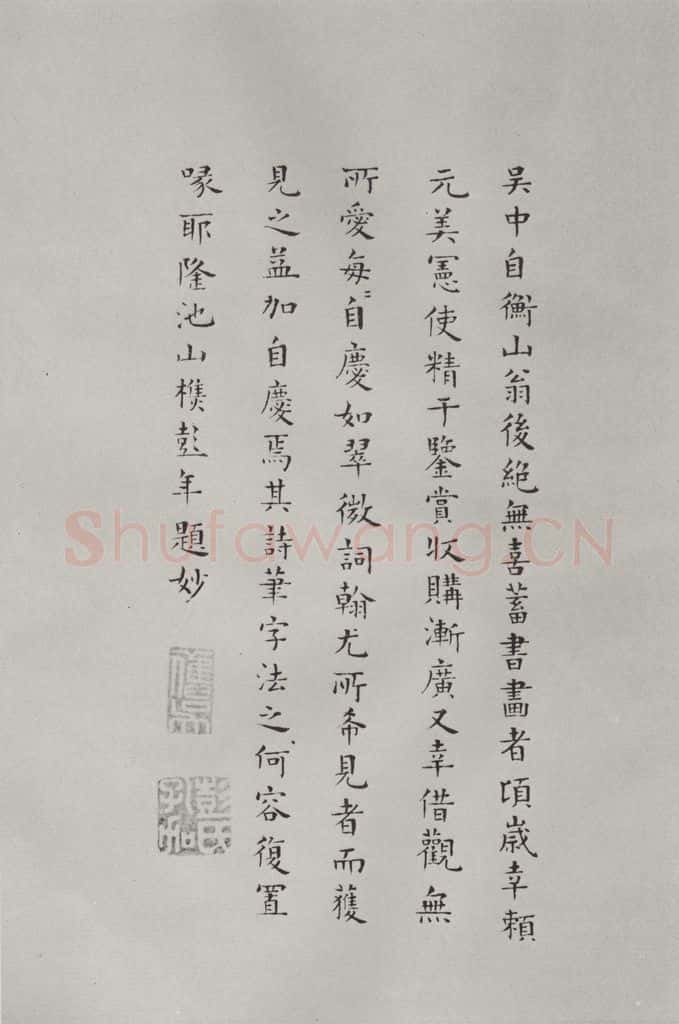 吴中自衡山翁後絶無喜蓄書畫者頃歲幸賴
元美憲使精于鑒賞收購漸廣又幸借觀無
所愛每〻自慶如翠微詞翰尤所希見者而獲
見之益加自慶焉其詩筆字法之何容復置
喙耶隆池山樵彭年題妙
Shufawang.CN